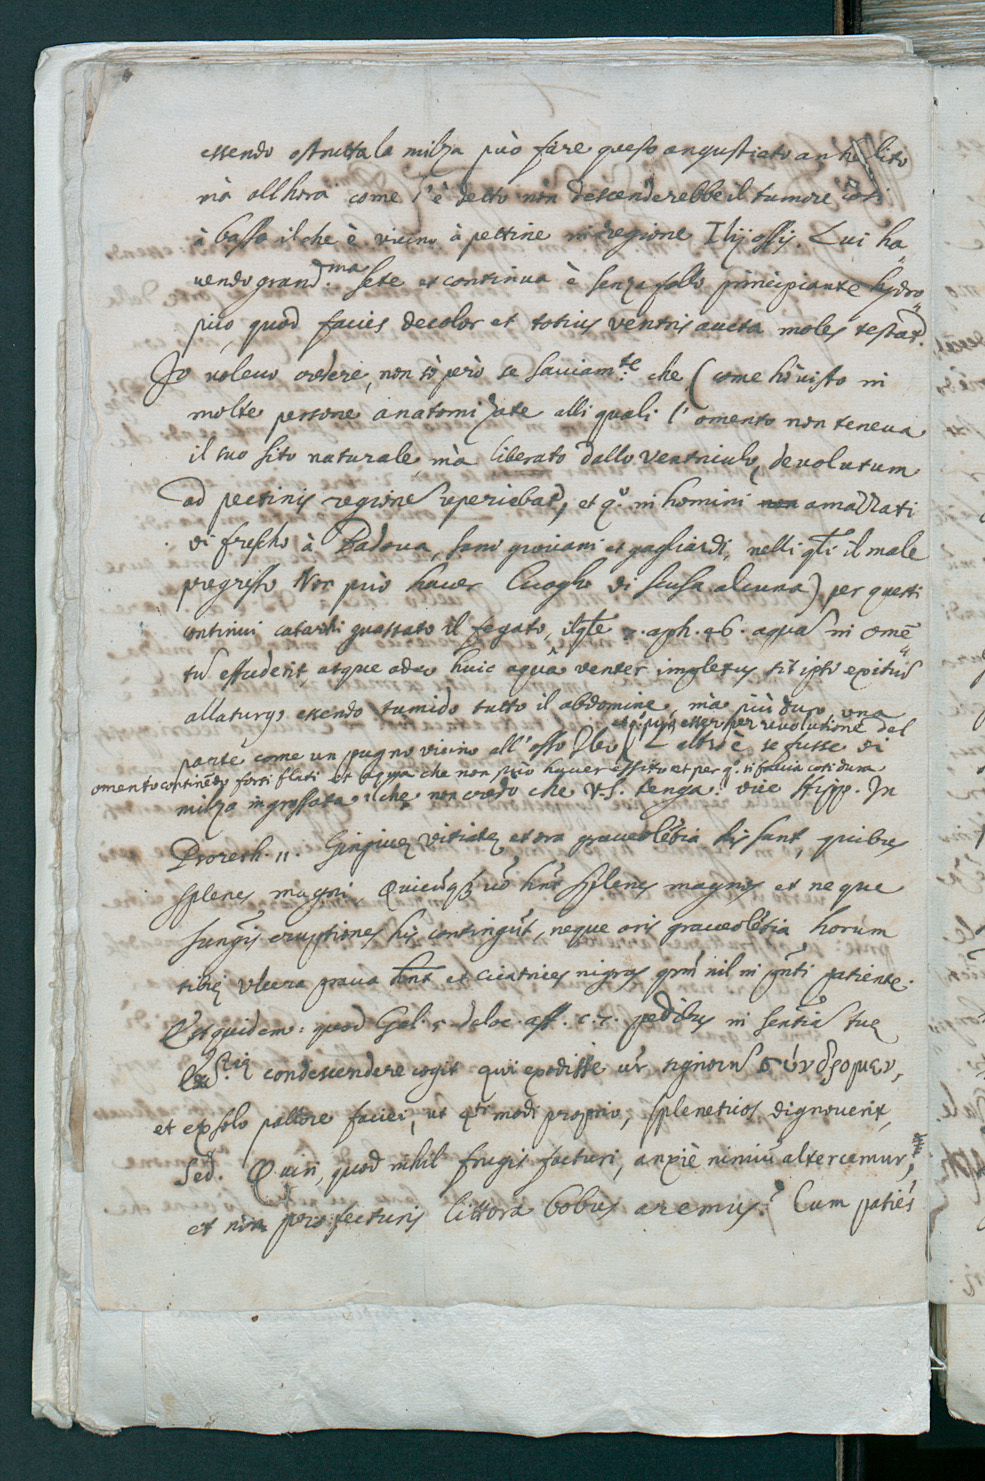 essendo ostrutta la milza può fare questo angustiato anhelito
mà allhora come s'è detto non descenderebbe il tumore così
à basso il che è vicino à pettine in regione Ilij ossis. Lui ha„
vendo grand.ma sete et continua è senza fallo principiante hydro„
pico, quod facies decolor et totius ventris aucta moles testat.
Io volevo credere, non sò però se saviam.te che (come hò visto in
molte persone anatomizate alli quali l'omento non teneva
il suo sito naturale mà liberato dallo ventriculo, devolutum
ad pectinis regione reperiebat, et q.o in homini non amazzati
di frescho à Padova, sani giovani et gagliardi, nelli q.li il male
progresso Non può haver luogho di scusa alcuna) per questi
continui catarrhi guastato il fegato, il q.le 7. aph. 46. aqua in omē„
tu effuderit, atque adeo huic aqua venter impletus sit ipse exitus
allaturus essendo tumido tutto il abdomine, mà più duro una
parte come un pugno vicino all'osso Ileo
et più esser per rivolutione del
L'altro è se fusse di
omento continēdo forti flati et aqua che non può haver essito et per q.o si faccia così dura
milza ingrossata, il che non credo che V.S. tenga. dice Hipp. In
Prorreth. 11. Gingivæ vitiatæ et ora graveolētia his sunt, quibus
splenes magni, Quicūq; vō hnt splenes magnos et neque
sangis eruptiones his contingūt, neque oris graveolētia horum
tibiæ ulcera prava hnt et cicatrices nigras qrm nil in pnti patiente.
Et quidem: quod Gal. 5. de loc. aff. c. 7. pedibus in sentia tuæ
condescendere cogit qui exodisse ur signorum συνδρομην,
et ex solo pallore faciei, ut qtr modi proprio, spleneticos dignoverit,
Sed. Quin, quod nihil frugis facturi, anxiè nimiū altercemur,
et non profecturis littora bobus aremus? Cum patiēs